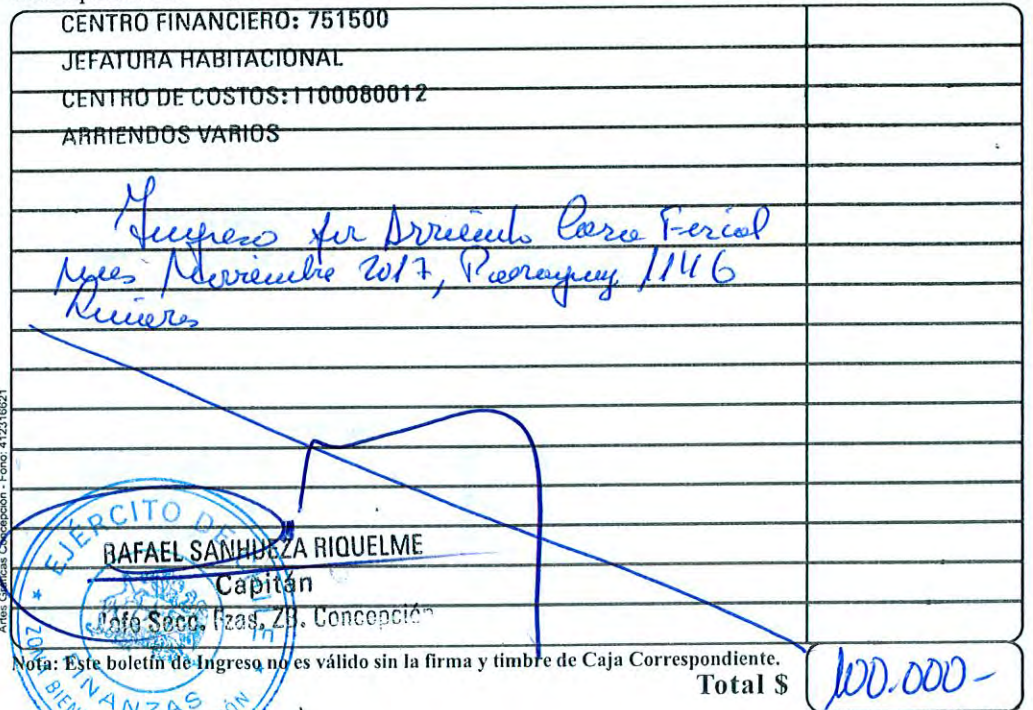 CENTRO FINANCIERO: 751500
JEFATURA HABITACIONAL
CENTRO DE COSTOS: 1100080012
ARRIENDOS VARIOS
Ingreso por Arriendo Casa Fiscal
mes Noviembre 2017, Paraguay 1146
Linares
Artes Gráficas Concepción - Fono: 412316621
EJÉRCITO DE
RAFAEL SANHUEZA RIQUELME
Capitán
Jefe Secc. Fzas. ZB. Concepción
ZONA BIEN
FINANZAS
Nota: Este boletín de Ingreso no es válido sin la firma y timbre de Caja Correspondiente.
Total $ 100.000-